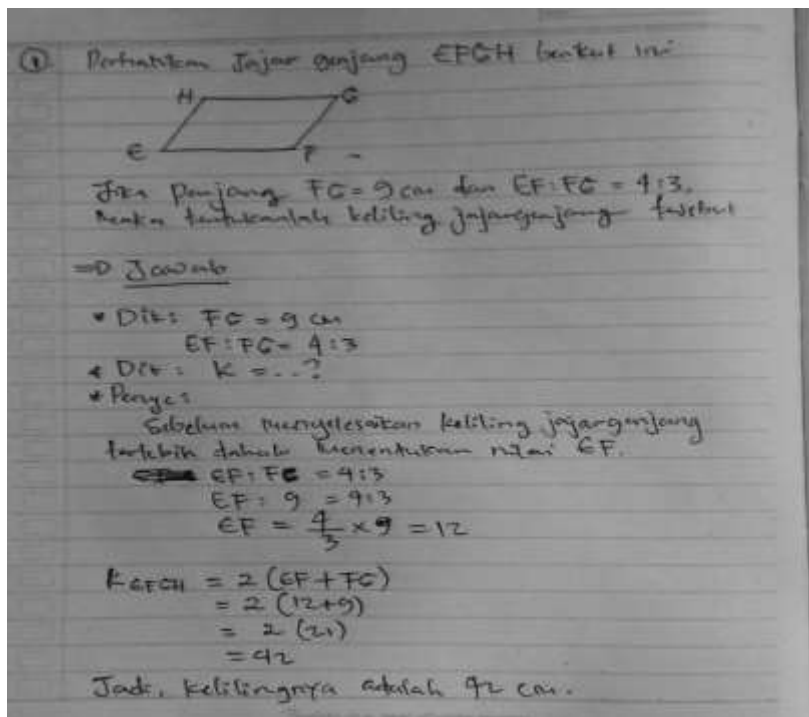 ① Perhatikan Jajar genjang EFGH berikut ini
H G
E F
Jika Panjang FG = 9 cm dan EF : FG = 4 : 3.
Maka tentukanlah keliling jajargenjang tersebut
⇒ Jawab
* Dik : FG = 9 cm
EF : FG = 4 : 3
* Dit : K = ..?
* Penye :
Sebelum menyelesaikan keliling jajargenjang
terlebih dahulu menentukan nilai EF.
EF : FG = 4 : 3
EF : 9 = 4 : 3
EF = 4/3 × 9 = 12
K EFGH = 2 (EF + FG)
= 2 (12+9)
= 2 (21)
= 42
Jadi, kelilingnya adalah 42 cm.